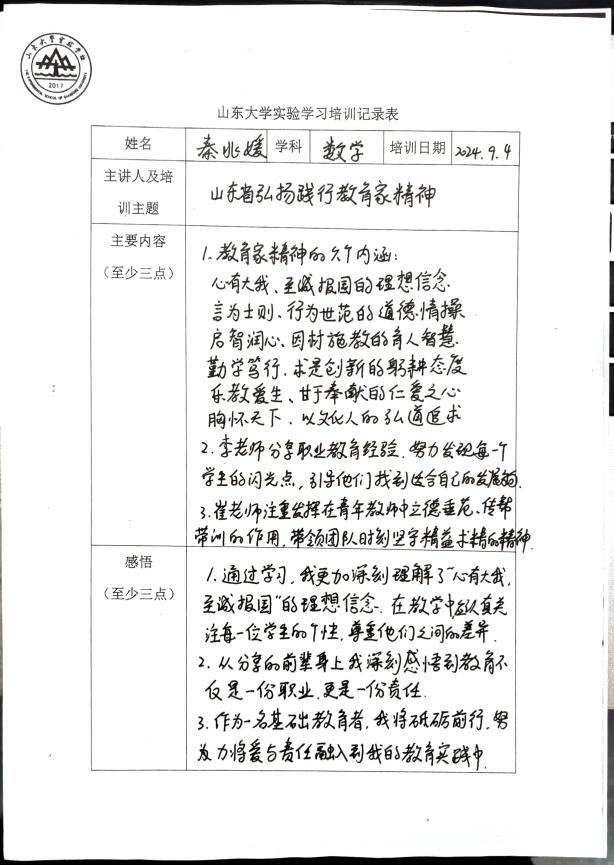 山东大学实验学校
THE EXPERIMENTAL SCHOOL OF SHANDONG UNIVERSITY
2017
山东大学实验学习培训记录表
姓名 秦兆媛 学科 数学 培训日期 2024.9.4
主讲人及培训主题 山东省弘扬践行教育家精神
主要内容
（至少三点）
1. 教育家精神的六个内涵:
心有大我、至诚报国的理想信念
言为士则、行为世范的道德情操
启智润心、因材施教的育人智慧
勤学笃行、求是创新的躬耕态度
乐教爱生、甘于奉献的仁爱之心
胸怀天下、以文化人的弘道追求
2. 李老师分享职业教育经验, 努力发现每一个
学生的闪光点, 引导他们找到适合自己的发展
3. 崔老师注重发挥在青年教师中立德垂范、传帮
带训的作用, 带领团队时刻坚守精益求精的精神.
感悟
（至少三点）
1. 通过学习, 我更加深刻理解了“心有大我,
至诚报国”的理想信念. 在教学中认真关
注每一位学生的个性, 尊重他们之间的差异.
2. 从分享的前辈身上我深刻感悟到教育不
仅是一份职业, 更是一份责任.
3. 作为一名基础教育者, 我将砥砺前行, 努
力将爱与责任融入到我的教育实践中.